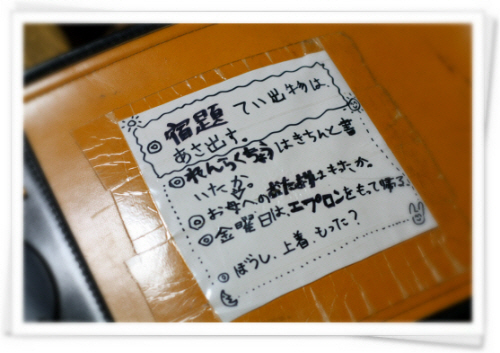 ◎宿題 てい出物は、
あさ出す。
◎れんらくちょうはきちんと書
いたか。
◎お母へのおたよりはもたか。
◎金曜日は、エプロンをもって帰る。
◎ぼうし、上着、もった？